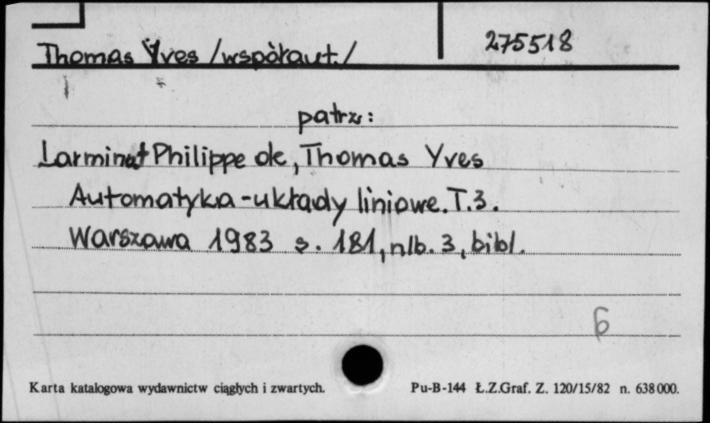 275518
Thomas Yves /współaut./
patrz:
Larminat Philippe de, Thomas Yves
Automatyka-układy liniowe. T.3.
Warszawa 1983 s. 181, nlb. 3, bibl.
6
Karta katalogowa wydawnictw ciągłych i zwartych. Pu-B-144 Ł.Z.Graf. Z. 120/15/82 n. 638000.